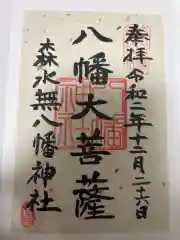 奉拝 令和二年十二月二十六日
八幡大菩薩
森水無八幡神社